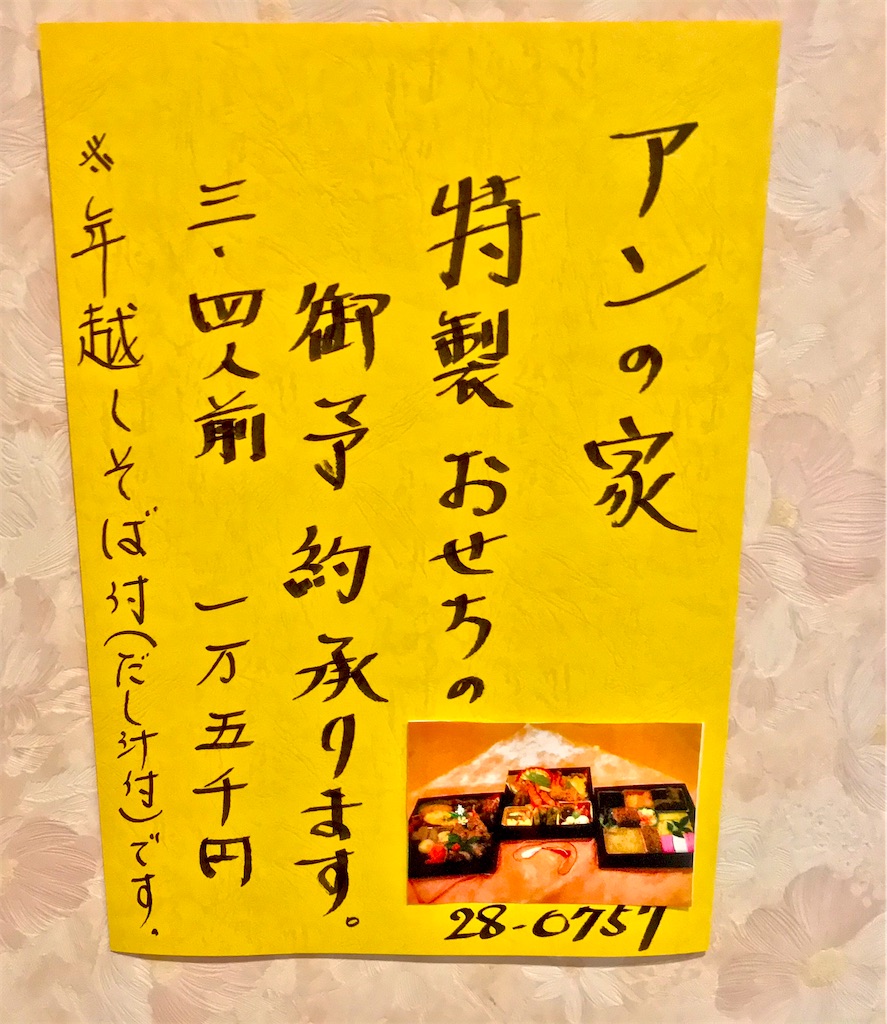 アンの家
特製おせちの
御予約承ります。
三・四人前 一万五千円
※年越しそば付(だし汁付)です.
28-0757